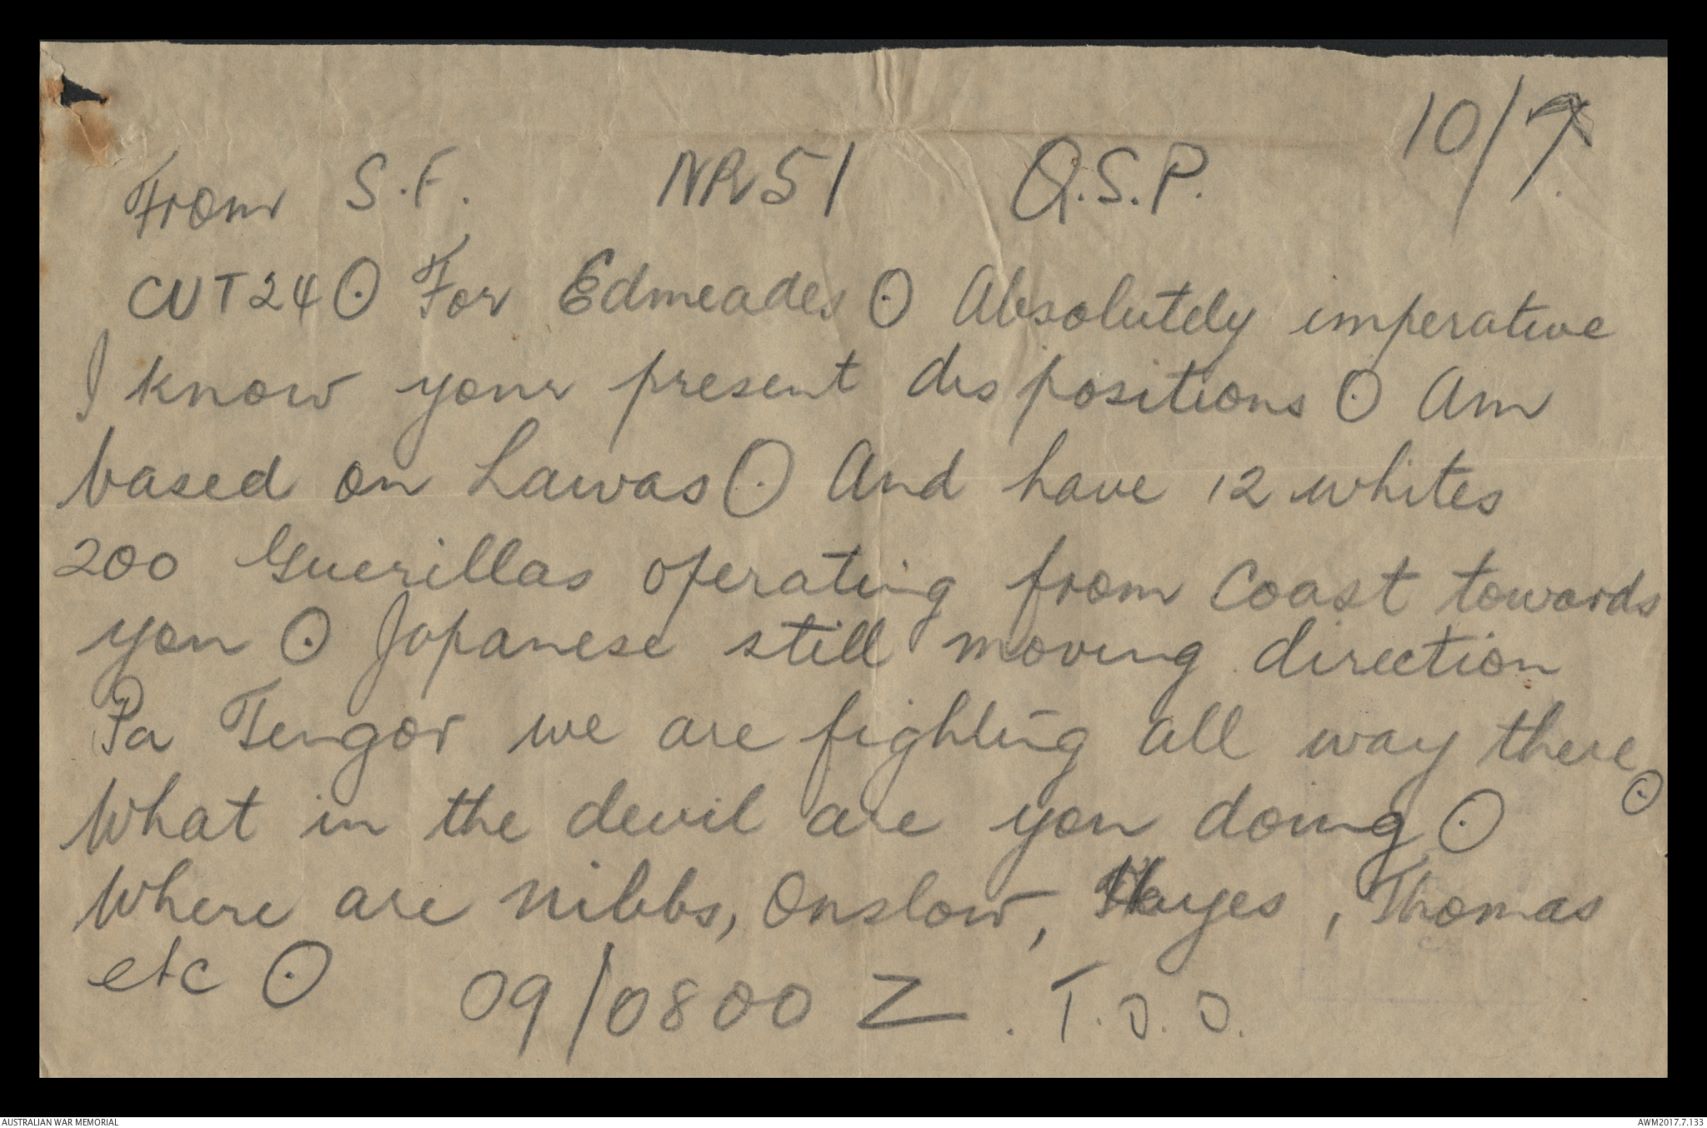 10/9
From S.F. NR51 Q.S.P.
CUT24 ⊙ For Edmeades ⊙ Absolutely imperative
I know your present dispositions ⊙ Am
based on Lawas ⊙ And have 12 whites
200 Guerillas operating from Coast towards
you ⊙ Japanese still moving direction
Pa Tengor we are fighting all way there ⊙
What in the devil are you doing ⊙
Where are Nibbs, Onslow, Hayes, Thomas
etc ⊙ 09/0800 Z. T.O.O.
AUSTRALIAN WAR MEMORIAL
AWM2017.7.133